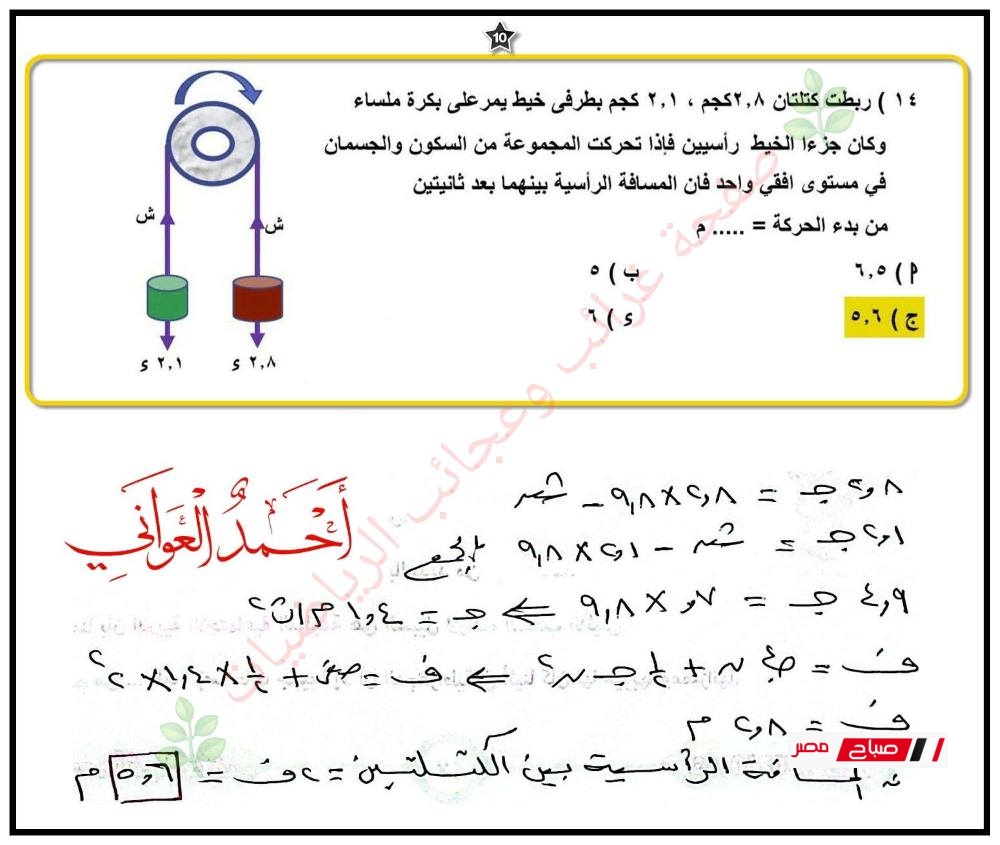 10
١٤ ) ربطت كتلتان ٢,٨كجم ، ٢,١ كجم بطرفى خيط يمرعلى بكرة ملساء
وكان جزءا الخيط رأسيين فإذا تحركت المجموعة من السكون والجسمان
في مستوى افقي واحد فان المسافة الرأسية بينهما بعد ثانيتين
من بدء الحركة = ..... م
أ ) ٦,٥
ب ) ٥
ج ) ٥,٦
ء ) ٦
ش
ش
٢,٨ ء
٢,١ ء
صفحة غرائب وعجائب الرياضيات
أحمد العواني
٢,٨ جـ = ٢,٨ × ٩,٨ - شـ
٢,١ جـ = شـ - ٢,١ × ٩,٨ بالجمع
٤,٩ جـ = ٠,٧ × ٩,٨ ⇐ جـ = ١,٤ م/ث٢
ف = ع. ن + ½ جـ ن٢ ⇐ ف = صفر + ½ × ١,٤ × ٢
ف = ٢,٨ م
∴ المسافة الرأسية بين الكتلتين = ٢ف = ٥,٦ م
صباح مصر